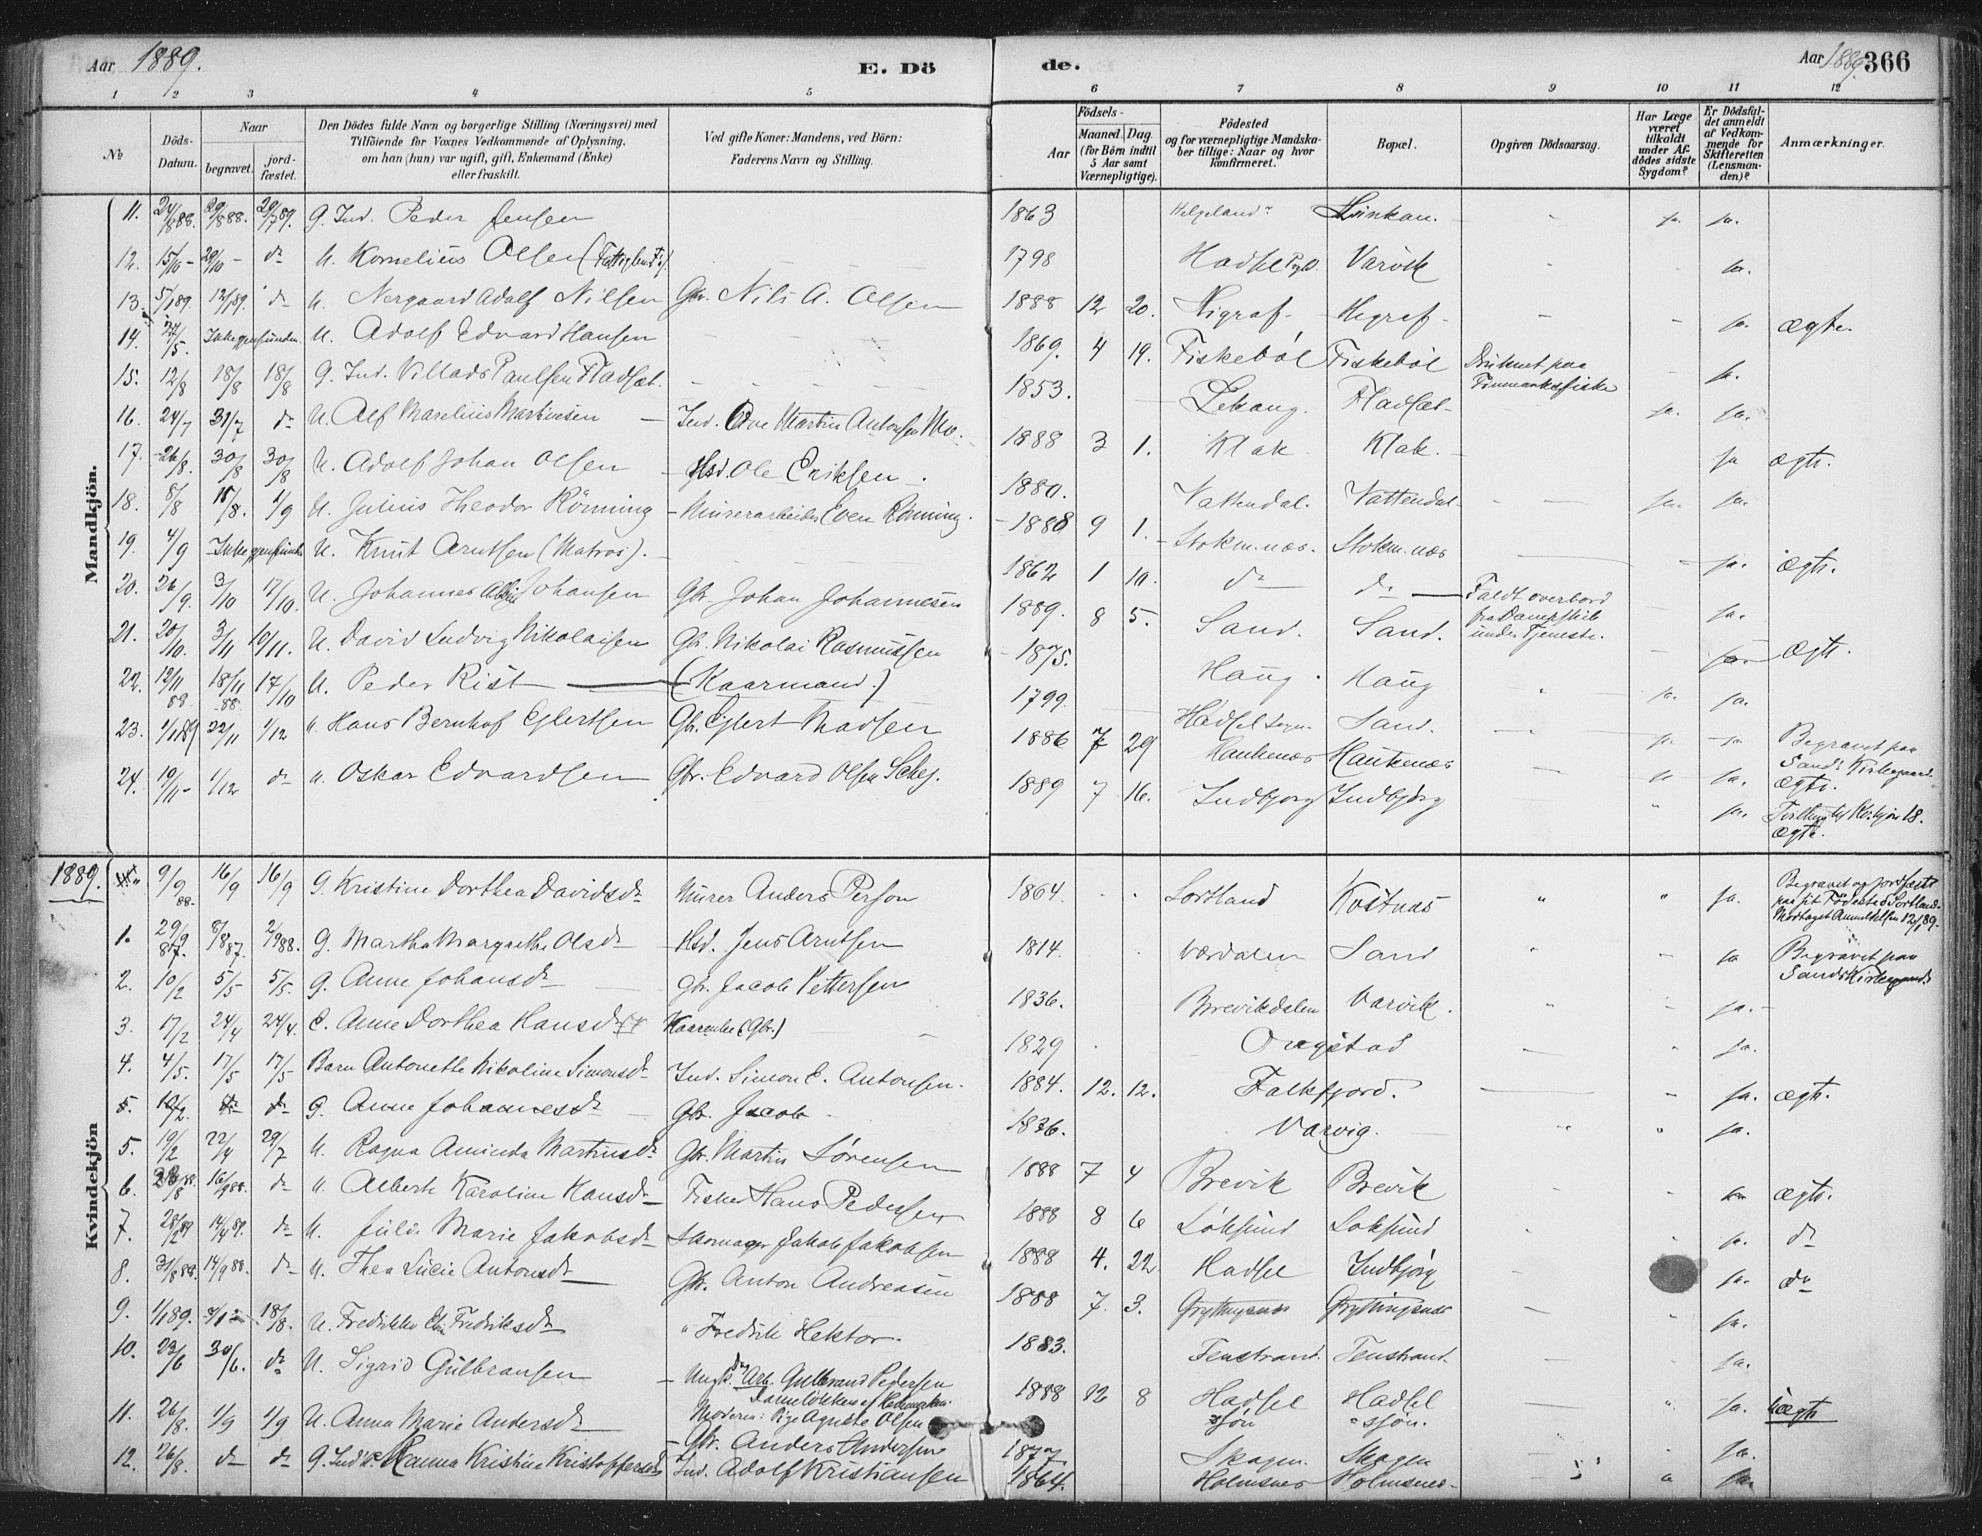 Aar 1889. E. Dö de. Aar 1889. 366
1 2 3 4 5 6 7 8 9 10 11 12
№ Döds-Datum. Naar begravet. jord-fæstet. Den Dödes fulde Navn og borgerlige Stilling (Næringsvei) med Tilföiende for Voxnes Vedkommende af Oplysning, om han (hun) var ugift, gift, Enkemand (Enke) eller fraskilt. Ved gifte Koner: Mandens, ved Börn: Faderens Navn og Stilling. Födsels- Aar Maaned. Dag. (for Börn indtil 5 Aar samt Værnepligtige). Födested og for værnepligtige Mandskaber tillige: Naar og hvor konfirmeret. Bopæl. Opgiven Dödsaarsag. Har Læge været tilkaldt under Afdödes sidste Sygdom? Er Dödsfaldet anmeldt af Vedkommende for Skifteretten (Lensmanden)? Anmærkninger.
Mandkjön.
11. 24/8 88. 29/8 88. 29/7 89. G. Ind. Peder Jensen 1863 Helgeland ja. ja.
12. 15/10 - 20/10 - do U. Kornelius Olsen 1798 Hadsel Varvik ja.
13. 5/1 89. 12/1 89. do U. Nergaard Adolf Nilsen Gbr. Nils A. Olsen 1888 12 20. Higraf - Higraf - ja. ægte.
14. 27/5. Ikke gjenfunden. U. Adolf Edvard Hansen 1869. 4 19. Fiskebøl Fiskebøl Druknet paa Finmarksfiske ja.
15. 12/8 18/8 18/8 G. Ind. Villads Paulsen Fladsæt. 1853. Lekang. Fladsæt - ja. ja.
16. 24/7 31/7 do U. Alf Marelius Martinesen Ind. Ove Martin Antonsen Mo. 1888 3 1. Klak. Klak. ja ægte.
17. 26/8. 30/8 30/8 U. Adolf Johan Olsen Hsd. Ole Eriksen. 1880. Vattendal. Vattendal. ja. ja.
18. 8/8 15/8. 1/9 U. Julius Theodor Rönning Minerarbeider Even Rönning. 1888 9 1. Stokm.næs. Stokm.næs ja. ægte.
19. 4/9 Ikke gjenfunden U. Knut Arntsen (Matros). 1862 1 10. do do Faldt overbord fra Dampskib under Tjeneste. ja.
20. 26/9. 3/10 17/10. U. Johannes Johansen Gbr. Johan Johannesen 1889. 8 5. Sand. Sand. ægte.
21. 20/10. 3/11 10/11. U. David Ludvig Nikolaisen Gbr. Nikolai Rasmussen 1875. Haug. Haug ja. ja.
22. 12/11 88 18/11 88. 17/10 U. Peder Rist (Kaarmand.) 1799. Hadsel Sogn Sand. ja. ja Begravet paa Sands Kirkegaard.
23. 1/1 89 22/11 1/12 " Hans Bernhof Eglertsen Gbr. Eglert Madsen 1886 7 29 Haukenæs Haukenæs ja. ægte.
24. 19/11 - 1/12 do " Oskar Edvardsen Gbr. Edvard Olsen 1889 7 16. Indbjorg Indbjörg ja. ægte.
Kvindekjön
1889. 9/9 88. 16/9 16/9 G. Kristine Dorthea Davidsdr Murer Anders Person 1864. Sortland Kvitnæs ja. Begravet og jordfæstet paa sit Födested Sortland. Modtaget Anmeldelsen 12/1 89.
1. 29/9 87. 8/8 87. 2/9 88. G. Martha Margrethe Olsdr Hsd. Jens Arntsen 1814. Værdalen Sand ja Begravet paa Sands Kirkegaard
2. 10/2 5/5 5/5. G. Anne Johansdr Gbr. Jacob Pettersen 1836. Brevikdalen Varvik. ja.
3. 17/2 24/4 24/4. E. Anne Dorthea Hansdr (Gbr.) 1829 Ongstad ja.
4. 4/5. 17/5 17/5 Barn Antonette Nikoline Simonsdr Ind. Simon E. Antonsen. 1884. 12. 12. Falkfjord. ja. ægte.
5. 10/2 do do G. Anne Johannesdr Gbr. Jacob 1836. Varvig. ja.
5. 19/2 22/4 29/7 U. Ragna Aminda Martinusdr Gbr. Martin Sørensen 1888 7 4 Brevik Brevik ja ægte.
6. 28/8 88. 16/9 88. do U. Alberte Karoline Hansdr Fisker Hans Pedersen 1888 8 6 Loksund Loksund ja. do
7. 28/2 89 14/4 89. do U. Julie Marie Jakobsdr Skomager Jakob Jakobsen 1888 4. 22. Hadsel Indbjörg ja. do
8. 31/8 88. 14/9 88. do U. Thea Lucie Antonsdr Gbr. Anton Andreasen 1888 7. 3. Grytingsnæs Grytingsnæs ja.
9. 1/1 89. 18/8. U. Fredrikke Fredriksdr " Fredrik Hektor. 1883. Fenstrand. Fenstrand. ja.
10. 23/6 30/6. do U. Sigrid Gulbransen Ungk. Arb. Gulbrand Pedersen Moderen: Pige Agnete Olsen 1888 12 8 Hadselsjön Hadselsjön. ja. uægte
11. 26/8. 1/9 1/9 U. Anna Marie Andersdr Gbr. Anders Andersen 1877 Skagen. Skagen ja.
12. 26/8. do do G. Ind.k. Hanna Kristine Kristoffersdr Ind. Adolf Kristiansen 1864. Holmsnes Holmsnes ja.